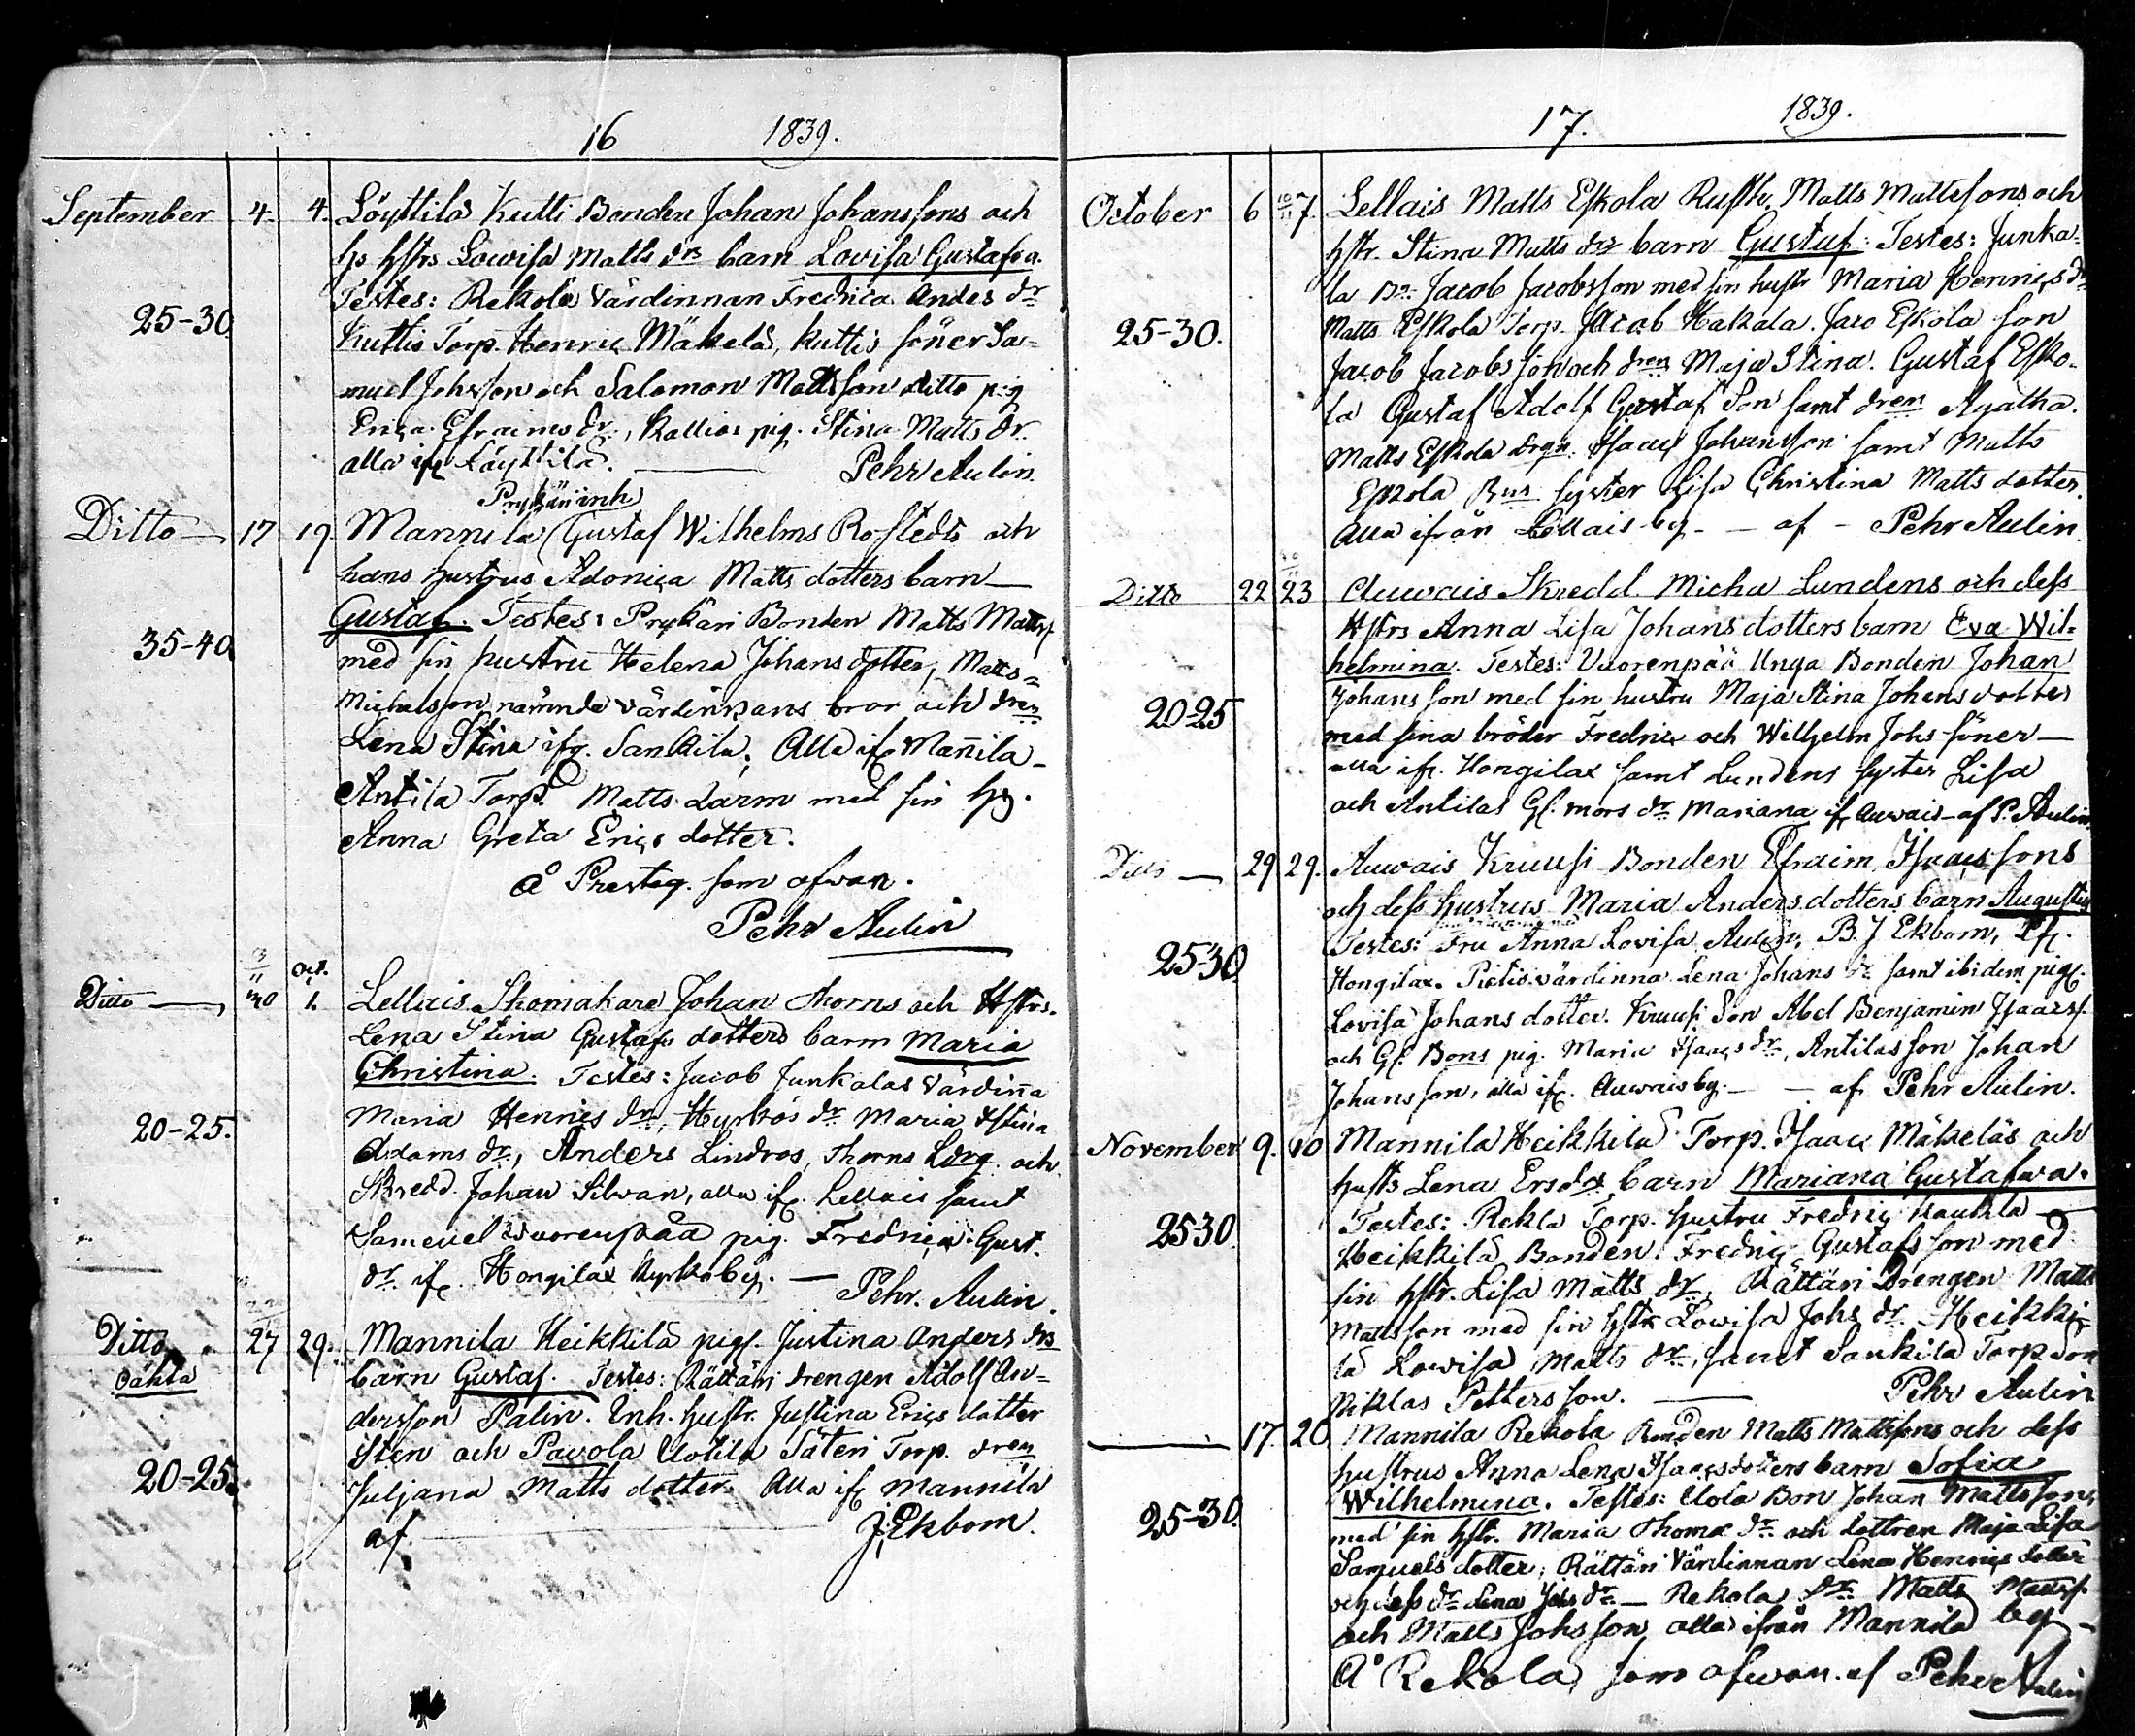 16 1839.
September 4. 4. Löyttilä Kutti Bonden Johan Johanssons och
hs hstrs Lowisa Matts drs barn Lovisa Gustafva.
Testes: Rekola Värdinnan Fredrica Anders dr
25-30. Kuttis Torp. Henric Mäkelä, Kuttis söner Sa=
muel Johsson och Salomon Mattsson ditto pig
Erica Efraims dr, Kallias pig. Stina Matts dr.
alla if Löyttilä. Pehr Aulin.
Prykäri inh
Ditto 17 19 Mannila Gustaf Wilhelms Rostedts och
hans hustrus Adonica Matts dotters barn
Gustaf. Testes: Prykäri Bonden Matts Mattss.
35-40 med sin hustru Helena Johans dotter, Matts=
Michelsson nämnde värdinnans bror och dren
Lena Stina ifr. Sankila; Alla if Mannila-
Antila Torp. Matts Larm med sin hu.
Anna Greta Erics dotter.
å Prestag. som ofwan.
Pehr Aulin
Oct.
Ditto 30 1. Lellais Skomakare Johan Thorns och Hstrs.
Lena Stina Gustafs dotters barn Maria
Christina. Testes: Jacob Junkalas Värdiña
Maria Henrics dr, Hyrkös dr Maria Stina
20-25. Adams dr, Anders Lindros, Thorns Ldrg. och
Skredd. Johan Silwan, alla if. Lellais samt
Samuel Wuorenpää pig. Fredrica Gust.
dr if. Hongilax Kyrkoby. Pehr. Aulin.
Ditto 27 29. Mannila Heikkilä pigs. Justina Anders drs
oäkta barn Gustaf. Testes: Rättäri drengen Adolf An=
dersson Palin. Inh. hustr. Justina Erics dotter
Sten och Pavola Uotila Säteri Torp. dren
20-25. Juljana Matts dotter. Alla if Mannila
af J. Ekbom.
17. 1839.
October 6 7. Lellais Matts Eskola Rusth. Matts Mattssons och
hstr. Stina Matts drs barn Gustaf: Testes: Junka=
la Bn. Jacob Jacobsson med sin hustr Maria Henrics dr
25-30. Matts Eskola Torp. Jacob Hakala. Jaco Eskola son
Jacob Jacobsson och dren Maja Stina. Gustaf Esko-
la Gustaf Adolf Gustaf Son samt dren Agatha.
Matts Eskola drgn. Isaac Johansson samt Matts
Eskola Bns syster Lisa Christina Matts dotter.
Alla ifrån Lellais by - af - Pehr Aulin.
Ditto 22 23 Auwais Skredd. Micha Lundens och dess
Hstrs Anna Lisa Johans dotters barn Eva Wil=
helmina. Testes: Vuorenpää Unga Bonden Johan
20-25 Johansson med sin hustru Maja Stina Johans dotter
med sina bröder Fredric och Wilhelm Johs söner
alla if. Hongilax samt Lundens syster Lisa
och Antilas Gl. mors dr Mariana if Auwais - af P. Aulin.
Ditto 29 29. Auwais Kruusi Bonden Efraim Isaacssons
och dess hustrus Maria Anders dotters barn Augustin
25-30 Testes: Fru Anna Lovisa Aulin, B. J Ekbom, if.
Hongilax. Pietis värdinna Lena Johans dr samt ibidem pig.
Lovisa Johans dotter. Kruusi Son Abel Benjamin Isaacss.
och Gl. Bons pig. Maria Isaacs dr, Antilas son Johan
Johansson, alla if. Auwais by. - af Pehr Aulin.
November 9. 10 Mannila Heikkilä Torp. Isaac Mäkeläs och
husts Lena Ersdrs barn Mariana Gustafwa.
25-30 Testes: Rekla Torp. hustru Fredric Haukila
Heikkilä Bonden Fredric Gustafsson med
sin hstr. Lisa Matts dr, Rättäri Drengen Matts
Mattsson med sin hstr Lowisa Johs dr. Heikki=
lä Lowisa Matts dr, samt Sankila Torp. son
Niklas Pettersson. Pehr Aulin
17. 20 Mannila Rekola Bonden Matts Mattssons och dess
hustrus Anna Lena Isaacsdotters barn Sofia
25-30. Wilhelmina. Testes: Uola Bon Johan Mattsson,
med sin hstr. Maria Thomæ dr. och dottren Maja Lisa
Samuels dotter; Rättäri Värdinnan Lena Henrics dotter
och dess dr Lena Johs dr - Rekola Dr. Matts Mattss.
och Matts Johsson, alla ifrån Mannila by -
Å Rekola, som ofwan. af Pehr Aulin